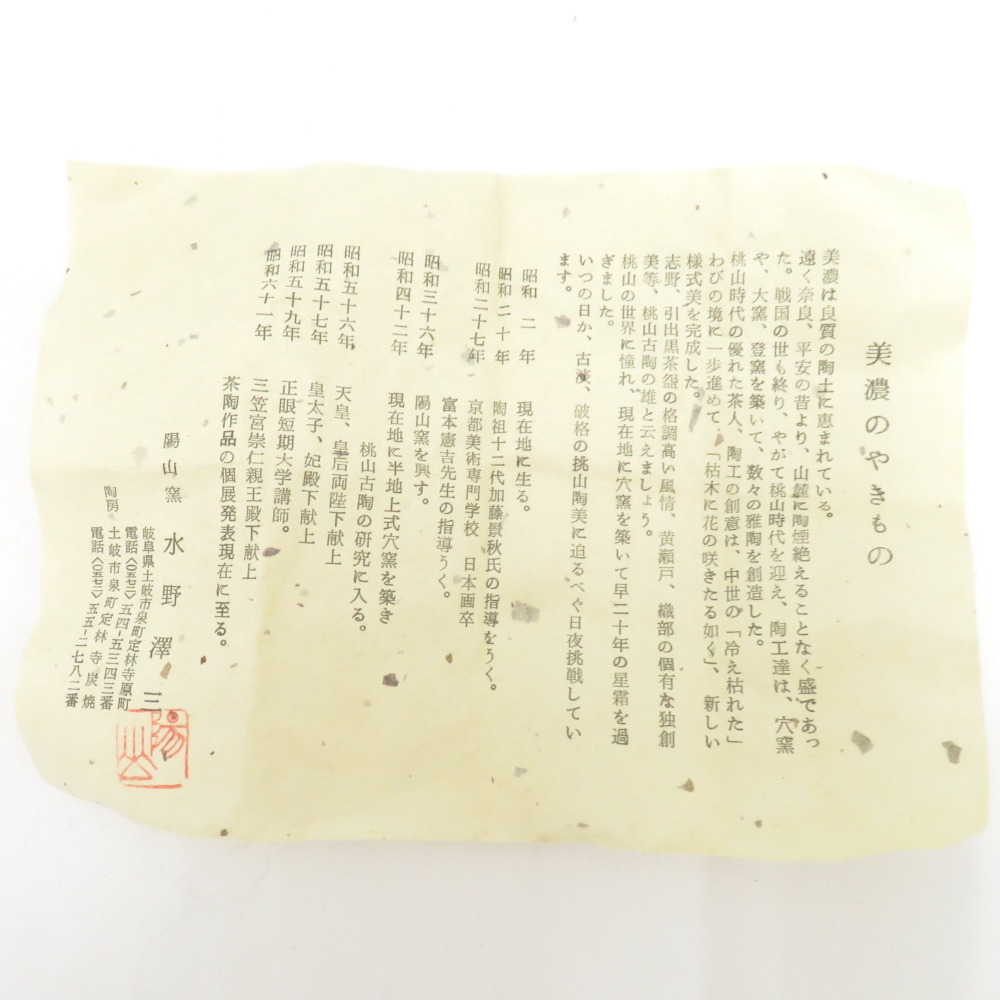 美濃のやきもの
美濃は良質の陶土に恵まれている。
遠く奈良、平安の昔より、山麓に陶煙絶えることなく盛であっ
た。戦国の世も終り、やがて桃山時代を迎え、陶工達は、穴窯
や、大窯、登窯を築いて、数々の雅陶を創造した。
桃山時代の優れた茶人、陶工の創意は、中世の「冷え枯れた」
わびの境に一歩進めて、「枯木に花の咲きたる如く」、新しい
様式美を完成した。
志野、引出黒茶盌の格調高い風情、黄瀬戸、織部の個有な独創
美等、桃山古陶の雄と云えましょう。
桃山の世界に憧れ、現在地に穴窯を築いて早二十年の星霜を過
ぎました。
いつの日か、古淡、破格の挑山陶美に迫るべぐ日夜挑戦してい
ます。
昭和二年 現在地に生る。
昭和二十年 陶祖十二代加藤景秋氏の指導をうく。
昭和二十七年 京都美術専門学校 日本画卒
富本憲吉先生の指導うく。
昭和三十六年 陽山窯を興す。
昭和四十二年 現在地に半地上式穴窯を築き
桃山古陶の研究に入る。
昭和五十六年 天皇、皇后両陛下献上
昭和五十七年 皇太子、妃殿下献上
昭和五十九年 正眼短期大学講師。
三笠宮崇仁親王殿下献上
昭和六十一年 茶陶作品の個展発表現在に至る。
陽山窯 水野澤三
岐阜県土岐市泉町定林寺原町
電話〈〇五七二〉五四-五三四三番
陶房 土岐市泉町定林寺炭焼
電話〈〇五七二〉五五-二七八二番
陽山